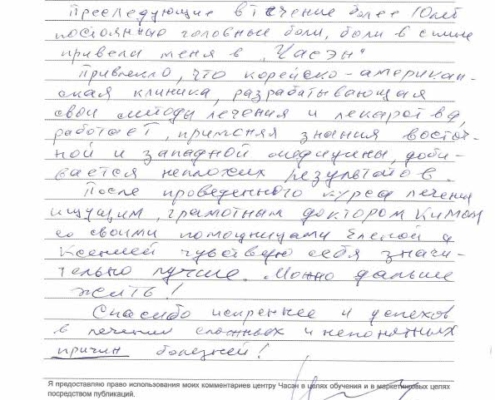 Преследующие в течение более 10 лет
постоянные головные боли, боли в спине
привели меня в "Часэн"
Привлекло, что корейско-американ-
ская клиника, разрабатывающая
свои методы лечения и лекарства,
работает, применяя знания восточ-
ной и западной медицины, доби-
вается неплохих результатов.
После проведенного курса лечения
ищущим, грамотным доктором Кимом
со своими помощницами Еленой и
Ксенией чувствую себя значи-
тельно лучше. Можно дальше
жить!
Спасибо искреннее и успехов
в лечении сложных и непонятных
причин болезней!
Я предоставляю право использования моих комментариев центру Часан в целях обучения и в маркетинговых целях
посредством публикаций.